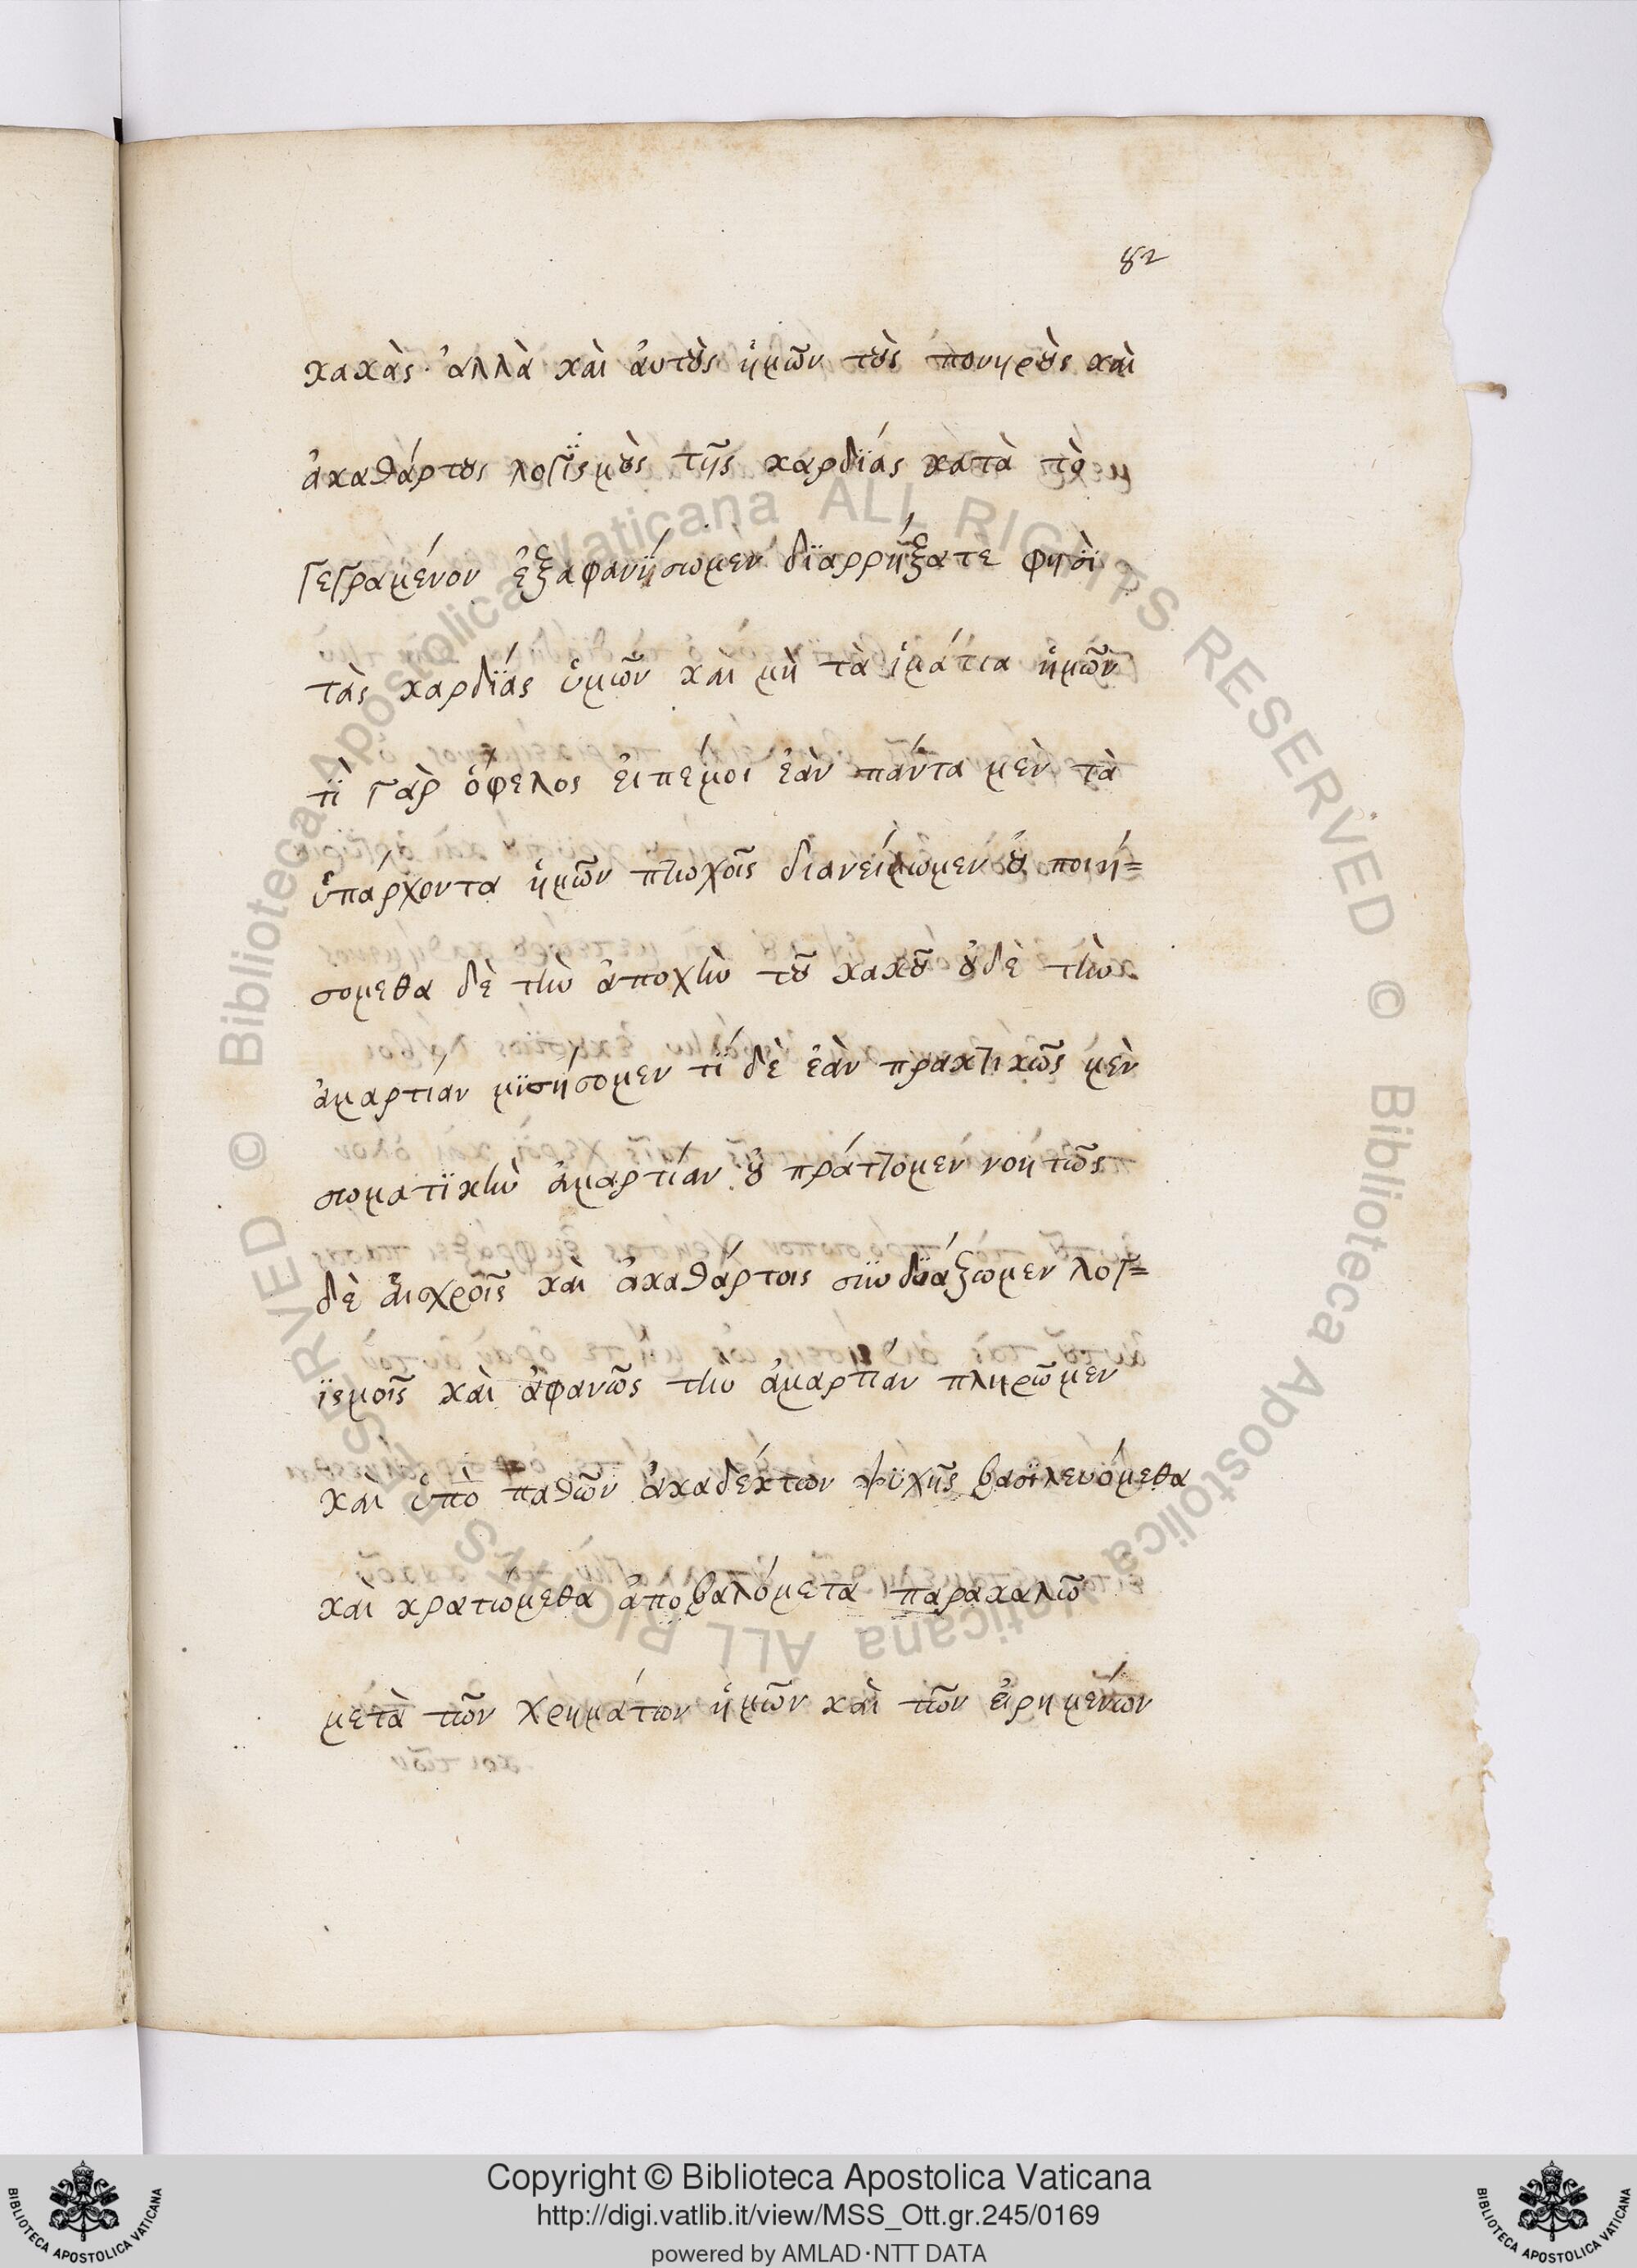 82
κακὰς· ἀλλὰ καὶ ἀυτȣ̀ς ἡμῶν τȣ̀ς πονηρȣ̀ς καὶ
ἀκαθάρτȣς λογϊσμȣ̀ς τῆς καρδΐας κατὰ τὸ
γεγραμένον ἐξαφανήσωμεν δϊαρρήξατε φησὶ
τὰς καρδΐας ὑμῶν καὶ μὴ τὰ ἱμάτια ἡμῶν
τῒ γὰρ ὄφελος ἐιπέμοι ἐὰν πάντα μὲν τὰ
ὑπάρχοντα ἡμῶν πτωχοῖς διανείμωμεν ȣ̓ ποιή=
σομεθα δὲ τὴν ἀποχὴν τȣ͂ κακȣ͂ ȣ̓δὲ τὴν
ἁμαρτίαν μϊσήσομεν τΐ δὲ ἐὰν πρακτικῶς μὲν
σωματϊκὴν ἁμαρτίαν ȣ̓ πράττομεν νοητῶς
δὲ ἀισχροῖς καὶ ἀκαθάρτοις συνδϋάξωμεν λογ=
ϊσμοῖς καὶ ἀφανῶς τὴν ἁμαρτίαν πληρῶμεν
καὶ ὑπὸ παθῶν ἀκαδέκτων ψϋχῆς βασϊλευόμεθα
καὶ κρατώμεθα ἀποβαλόμετα παρακαλῶ
μετὰ τῶν χρημάτων ἡμῶν καὶ τῶν ἐιρημένων
Copyright © Biblioteca Apostolica Vaticana
http://digi.vatlib.it/view/MSS_Ott.gr.245/0169
powered by AMLAD·NTT DATA
BIBLIOTECA APOSTOLICA VATICANA
BIBLIOTECA APOSTOLICA VATICANA
© Biblioteca Apostolica Vaticana ALL RIGHTS RESERVED © Biblioteca Apostolica Vaticana ALL RIGHTS RESERVED